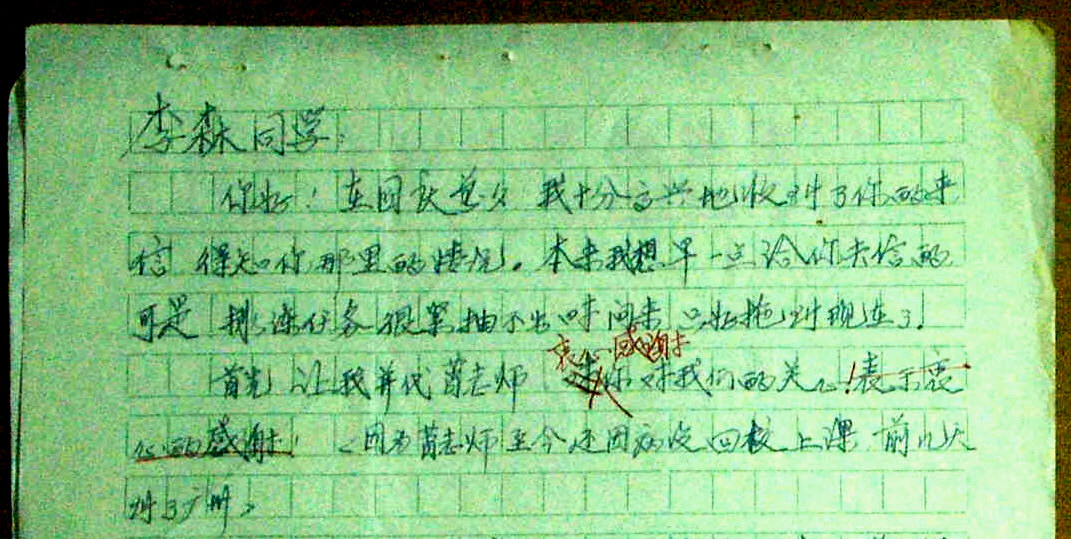 李森同学：
你好！在国庆前夕 我十分高兴地收到了你的来
信 得知你那里的情况。本来我想早一点给你去信的
可是 排练任务很紧抽不出时间来 只好拖到现在了！
衷心感谢
首先 让我并代萧老师 你对我们的关心！表示衷
心的感谢！（因为萧老师至今还因病没回校上课 前几天
到了广州。